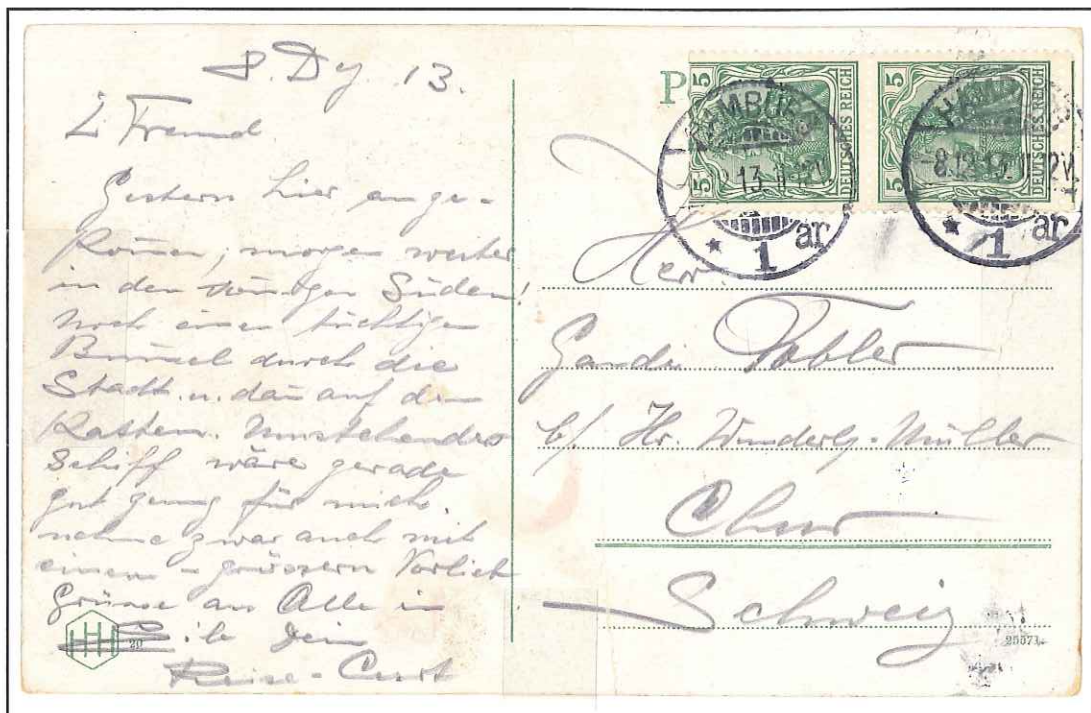 8. Dez. 13.
L. Freund
Gestern hier ange-
kom̅en, morgen weiter
in den Süden!
Noch einen tüchtigen
Bum̅el durch die
Stadt u. dan̅ auf den
Kasten. Umstehendes
Schiff wäre gerade
gut genug für mich,
nehme zwar auch mit
einem grösseren Vorlieb
Grüsse an Alle in
Eile Dein
Reise-Curt
HHH
20
P
5
5
DEUTSCHES REICH
5
5
DEUTSCHES REICH
HAMBURG
13
* 1 ar
HAMBURG
-8.12.13.11-12V.
* 1 ar
Herr
Tobler
b/ Hr. Wunderly-Müller
Chur
Schweiz